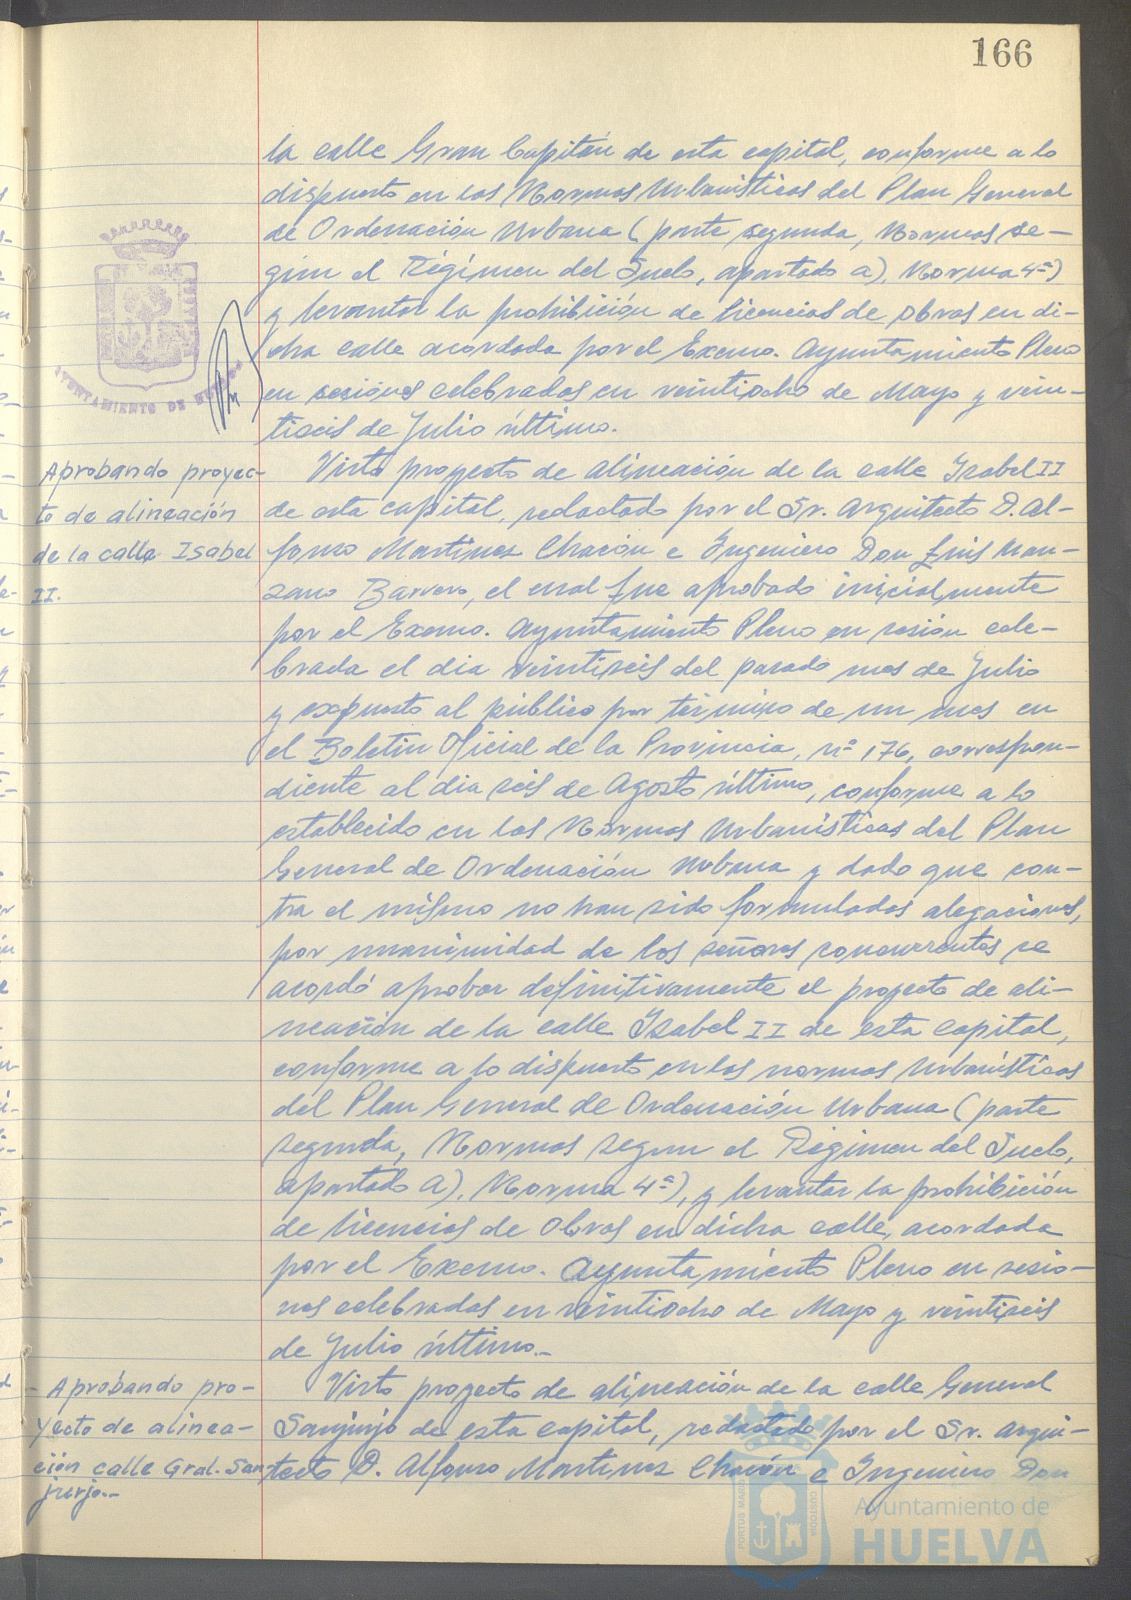 166
la calle Gran Capitán de esta capital, conforme a lo
dispuesto en las Normas Urbanísticas del Plan General
de Ordenación Urbana (parte segunda, Normas se-
gún el Régimen del Suelo, apartado a), Norma 4ª)
y levantar la prohibición de licencias de obras en di-
cha calle acordada por el Excmo. Ayuntamiento Pleno
en sesiones celebradas en veintiocho de Mayo y vein-
tiseis de Julio último.
AYUNTAMIENTO DE HUELVA
Aprobando proyec-
to de alineación
de la calle Isabel
II.
Visto proyecto de alineación de la calle Isabel II
de esta capital, redactado por el Sr. Arquitecto D. Al-
fonso Martinez Chacón e Ingeniero Don Luis Man-
zano Barrero, el cual fue aprobado inicialmente
por el Excmo. Ayuntamiento Pleno en sesión cele-
brada el dia veintiseis del pasado mes de Julio
y expuesto al público por término de un mes en
el Boletín Oficial de la Provincia, nº 176, correspon-
diente al dia seis de Agosto último, conforme a lo
establecido en las Normas Urbanísticas del Plan
General de Ordenación Urbana y dado que con-
tra el mismo no han sido formulados alegaciones,
por unanimidad de los señores concurrentes se
acordó aprobar definitivamente el proyecto de ali-
neación de la calle Isabel II de esta capital,
conforme a lo dispuesto en las normas Urbanísticas
del Plan General de Ordenación Urbana (parte
segunda, Normas segun el Régimen del Suelo,
apartado a), Norma 4ª), y levantar la prohibición
de licencias de obras en dicha calle, acordada
por el Excmo. Ayuntamiento Pleno en sesio-
nes celebradas en veintiocho de Mayo y veintiseis
de Julio último.-
- Aprobando pro-
yecto de alinea-
ción calle Gral. San-
jurjo.-
Visto proyecto de alineación de la calle General
Sanjurjo de esta capital, redactado por el Sr. Arqui-
tecto D. Alfonso Martinez Chacón e Ingeniero Don
PORTUS MARIS
CUSTODIA
Ayuntamiento de
HUELVA